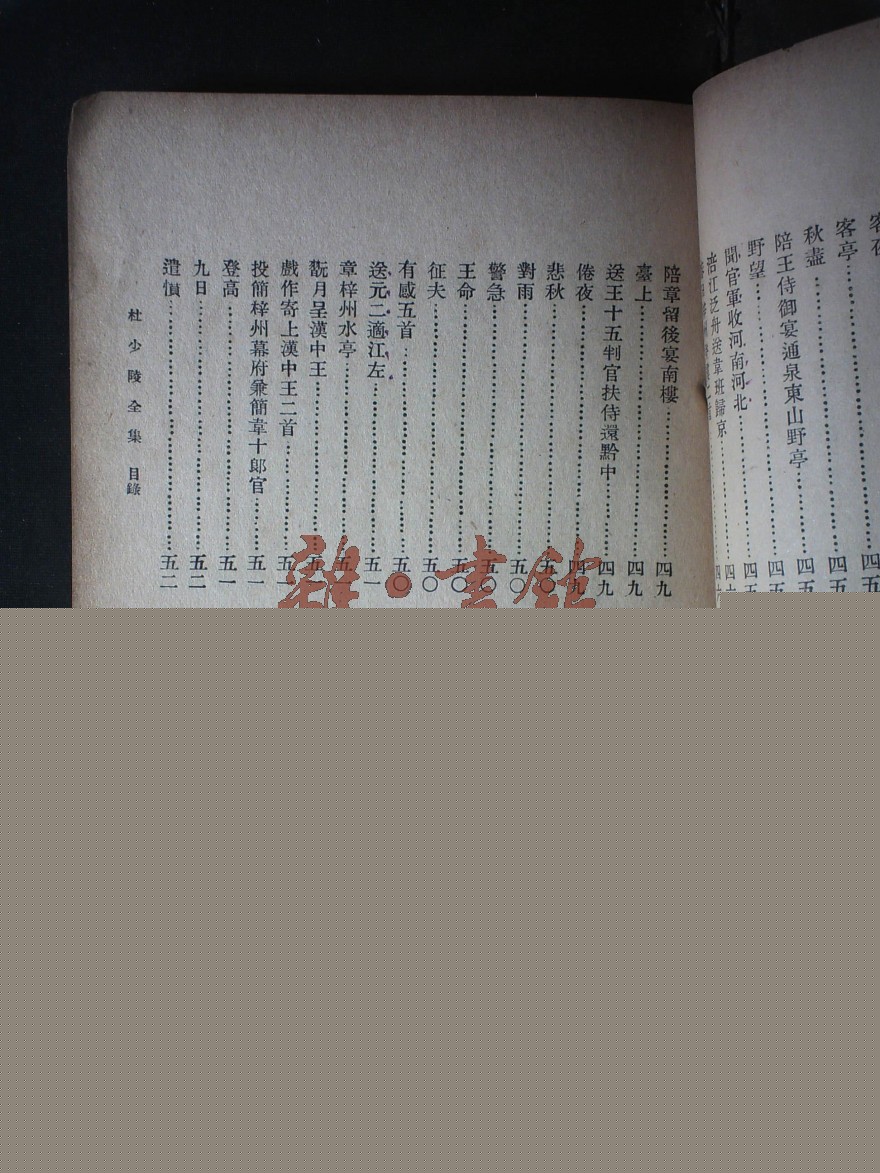 客亭……四五
秋盡……四五
陪王侍御宴通泉東山野亭……四五
野望……四五
聞官軍收河南河北……四
涪江泛舟送韋班歸京……四
陪章留後宴南樓……四九
臺上……四九
送王十五判官扶侍還黔中……四九
倦夜……四九
悲秋……五〇
對雨……五〇
警急……五〇
王命……五〇
征夫……五〇
有感五首……五〇
送元二適江左……五一
章梓州水亭……五一
翫月呈漢中王……五一
戲作寄上漢中王二首……五一
投簡梓州幕府兼簡韋十郎官……五一
登高……五一
九日……五二
遣憤……五二
杜少陵全集 目錄